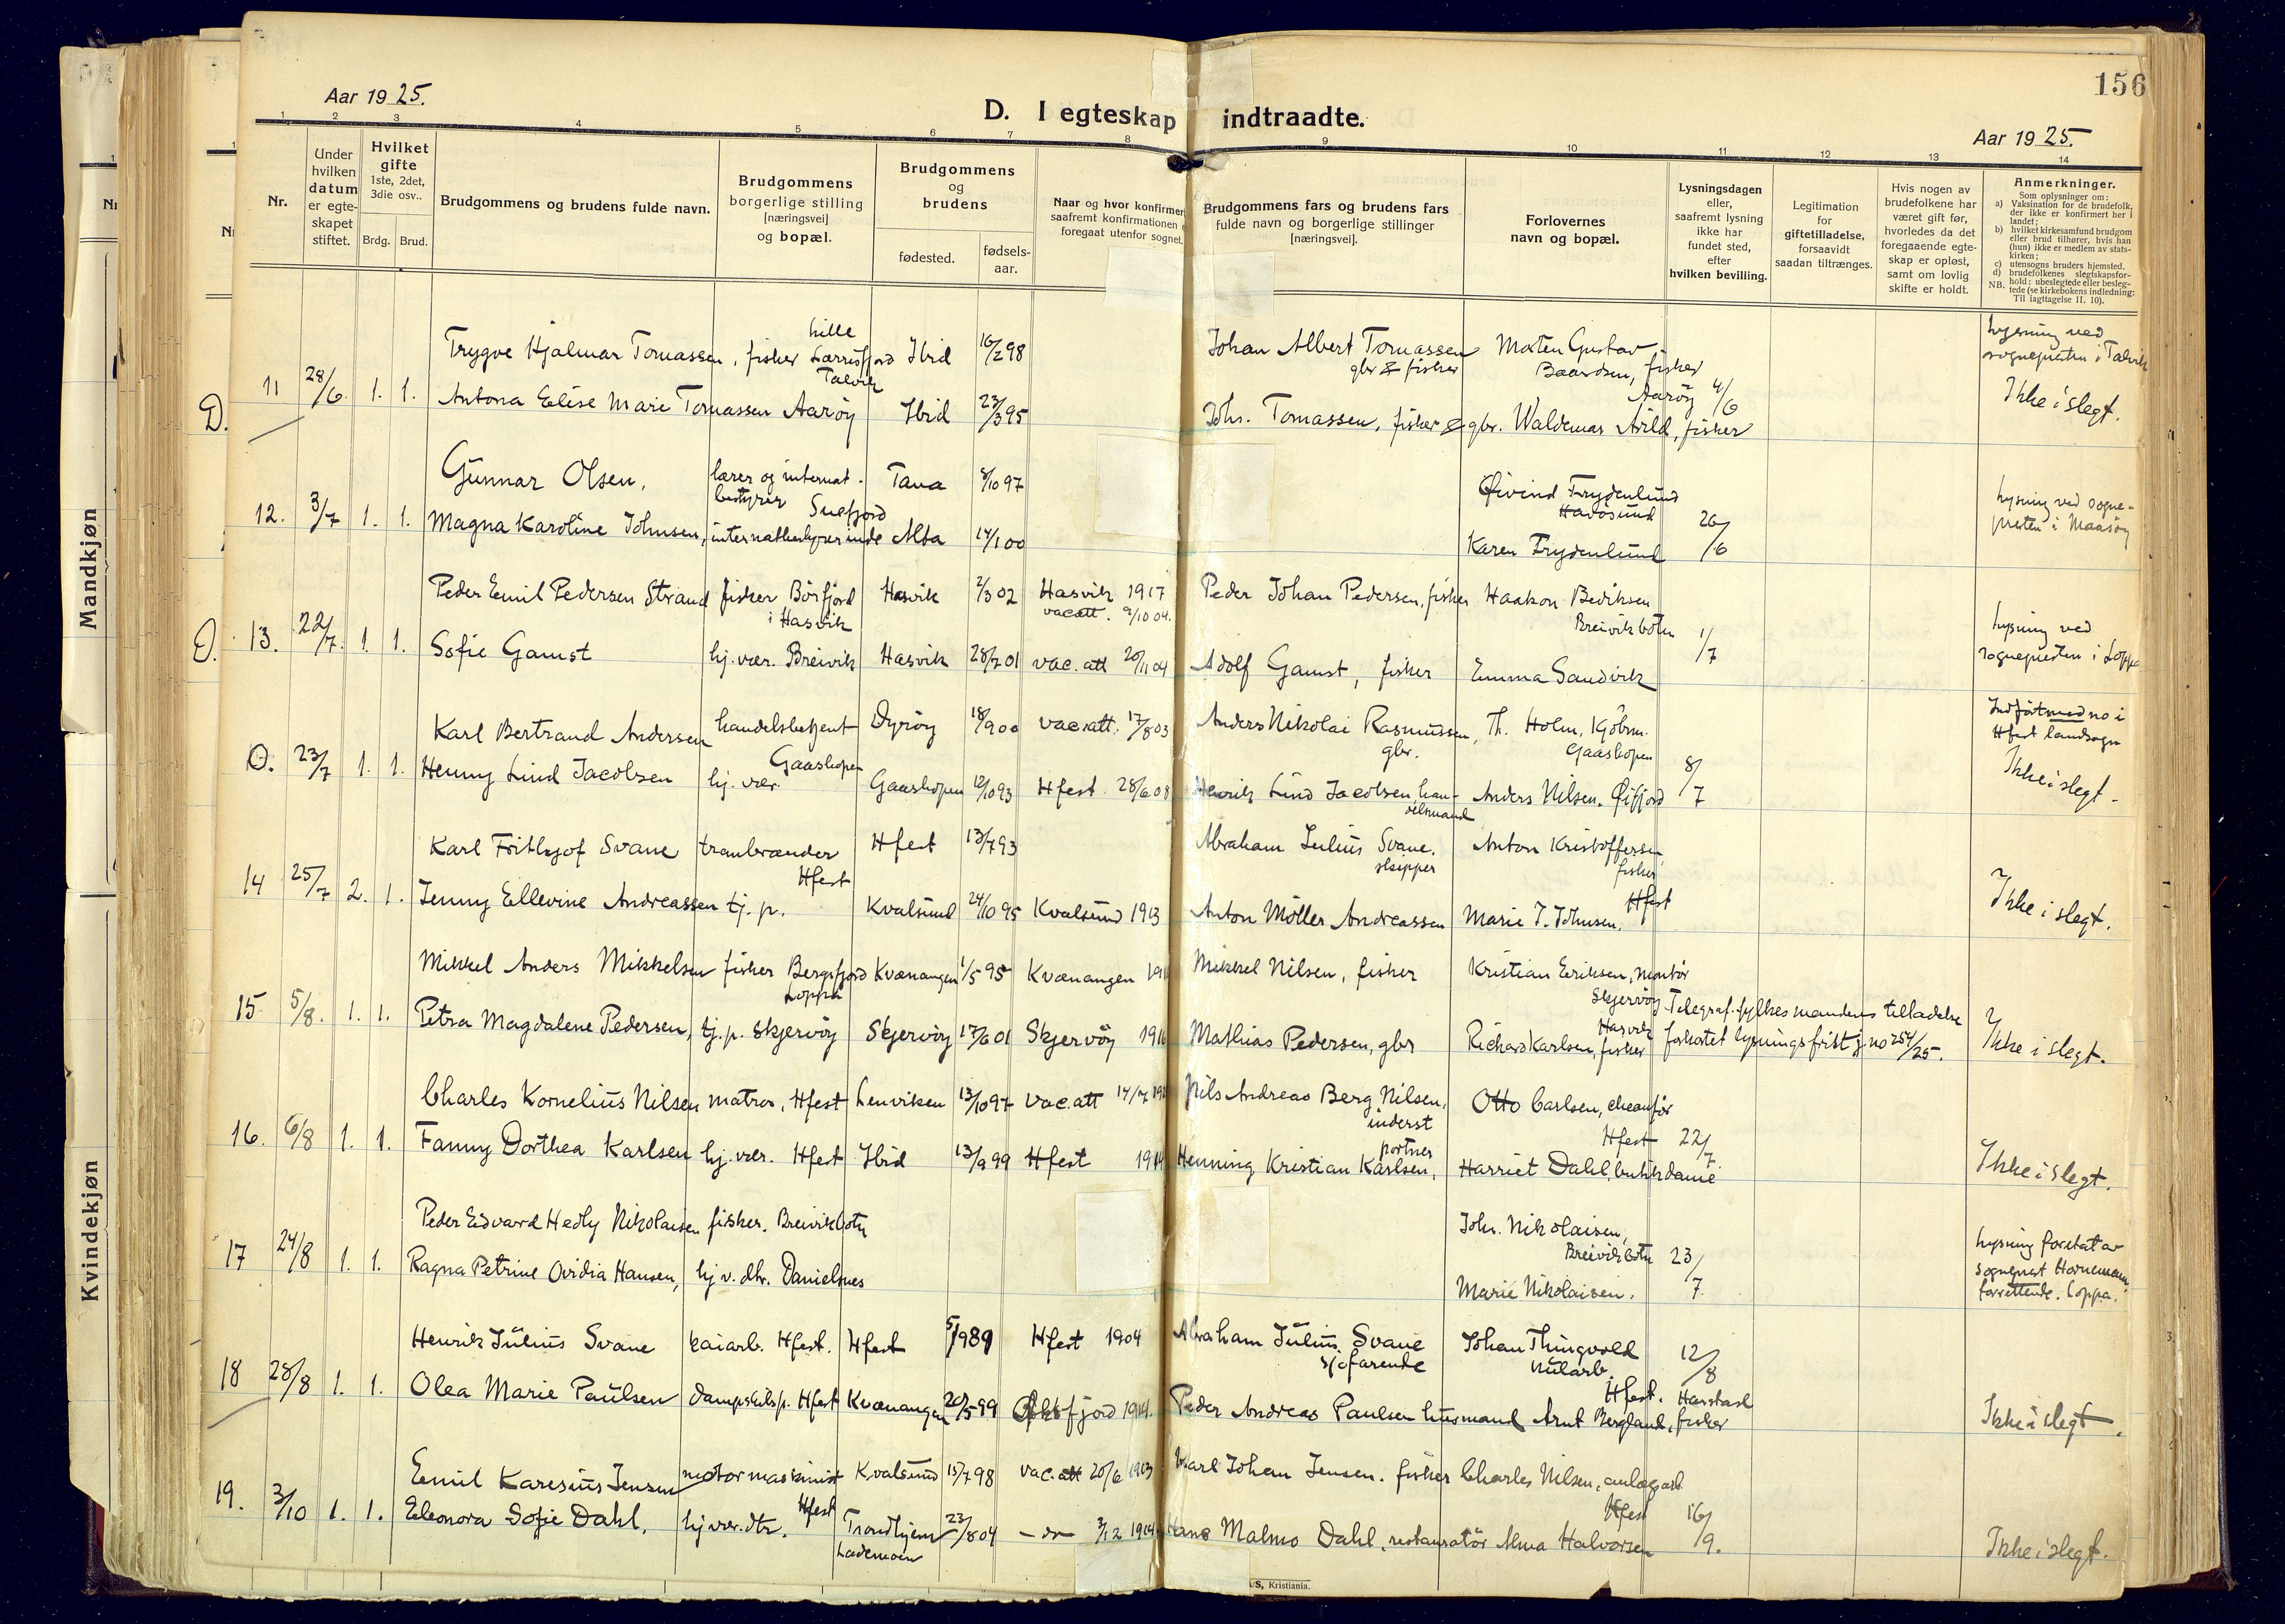 156
Aar 1925.
D. I egteskap indtraadte.
Aar 1925.
1 2 3 4 5 6 7 8 9 10 11 12 13 14
Nr.
Under hvilken datum er egteskapet stiftet.
Hvilket gifte 1ste, 2det, 3die osv..
Brdg. Brud.
Brudgommens og brudens fulde navn.
Brudgommens borgerlige stilling [næringsvei] og bopæl.
Brudgommens og brudens
fødested.
fødsels-aar.
Naar og hvor konfirmer
saafremt konfirmationen
foregaat utenfor sognet.
Brudgommens fars og brudens fars
fulde navn og borgerlige stillinger
[næringsvei].
Forlovernes
navn og bopæl.
Lysningsdagen
eller,
saafremt lysning
ikke har
fundet sted,
efter
hvilken bevilling.
Legitimation
for
giftetilladelse,
forsaavidt
saadan tiltrænges.
Hvis nogen av
brudefolkene har
været gift før,
hvorledes da det
foregaaende egte-
skap er opløst,
samt om lovlig
skifte er holdt.
Anmerkninger.
Som oplysninger om:
a) Vaksination for de brudefolk,
der ikke er konfirmert her i
landet;
b) hvilket kirkesamfund brudgom
eller brud tilhører, hvis han
(hun) ikke er medlem av stats-
kirken;
c) utensogns bruders hjemsted.
d) brudefolkenes slegtskapsfor-
hold: ubeslegtede eller besleg-
NB. tede (se kirkebokens indledning:
Til iagttagelse II. 10).
Mandkjøn
Kvindekjøn
D. 11 28/6. 1. 1.
Trygve Hjalmar Tomassen, fisker Lille Lærrisfjord Talvik Ibid 16/2 98
Johan Albert Tomassen gbr & fisker Morten Gustav Baardsen, fisker Aarøy 4/6
Lysning ved sognepresten i Talvik
Antona Elise Marie Tomassen Aarøy Ibid 23/3 95
Johs. Tomassen, fisker & gbr. Waldemar Arild, fisker
Ikke i slegt.
12. 3/7 1. 1.
Gunnar Olsen, lærer og internat-bestyrer Snefjord Tana 8/10 97
Øivind Frydenlund Havøsund 26/6
Lysning ved sogne-presten i Maasøy
Magna Karoline Johnsen, internatbestyrerinde Alta 14/1 00
Karen Frydenlund
D. 13. 22/7. 1. 1.
Peder Emil Pedersen Strand fisker Børfjord i Hasvik Hasvik 2/3 02 Hasvik 1917 vac att. 9/10 04.
Peder Johan Pedersen, fisker Haakon Bediksen Breivikbotn 1/7
Lysning ved sognepresten i Loppa
Sofie Gamst hj. vær. Breivik Hasvik 28/7 01 vac. att 20/11 04
Adolf Gamst, fisker Emma Sandvik
D. 23/7 1. 1.
Karl Bertrand Andersen handelsbetjent Gaashopen Dyrøy 18/9 00 vac. att. 17/8 03
Anders Nikolai Rasmussen, gbr. Th. Holm, Kjøbm. Gaashopen 8/7
Indført med no i Hfest landsogn
Henny Lind Jacobsen hj. vær. Gaashopen 12/10 93 Hfest 28/6 08
Henrik Lind Jacobsen han-delsmand Anders Nilsen. Øifjord
Ikke i slegt.
14 25/7 2. 1.
Karl Frithjof Svane tranbrænder Hfest Hfest 13/7 93
Abraham Julius Svane. skipper Anton Kristoffersen, fisker Hfest
Jenny Ellevine Andreassen tj. p. Kvalsund 24/10 95 Kvalsund 1913
Anton Møller Andreassen Marie J. Johnsen.
Ikke i slegt.
15 5/8. 1. 1.
Mikkel Anders Mikkelsen fisker Bergsfjord Loppa Kvænangen 1/5 95 Kvænangen
Mikkel Nilsen, fisker Kristian Eriksen, montør Skjervøy
Petra Magdalene Pedersen, tj. p. Skjervøy Skjervøy 17/6 01 Skjervøy 1916
Mathias Pedersen, gbr Richard Karlsen, fisker Hasvik
Telegraf. fylkesmandens tilladelse forkortet lysningsfrist j. no 254/25.
Ikke i slegt.
16. 6/8 1. 1.
Charles Kornelius Nilsen matros, Hfest Lenviken 13/10 97 vac. att
Nils Andreas Berg Nilsen, inderst Otto Carlsen, cheauffør Hfest 22/7.
Fanny Dorthea Karlsen hj. vær. Hfest Ibid 13/9 99 Hfest 1914
Henning Kristian Karlsen, portner Harriet Dahl, butikdame
Ikke i slegt.
17 24/8 1. 1.
Peder Edvard Hedly Nikolaisen fisker. Breivikbotn
Joh. Nikolaisen, Breivikbotn 23/7.
Ragna Petrine Ovidia Hansen, hj v. dtr. Danielsnes
Marie Nikolaisen.
Lysning foretat av sogneprest Hornemann, forrettende. Loppa.
18 28/8 1. 1.
Henrik Julius Svane kaiarb. Hfest. Hfest 5/9 89 Hfest 1904
Abraham Julius Svane sjøfarende Johan Thingvold Hfest. 12/8
Olea Marie Paulsen dampskibsp. Hfest Kvænangen 20/5 99 Øksfjord 1914.
Peder Andreas Paulsen husmand Arnt Bergland, fisker Harstad
Ikke i slegt.
19. 3/10 1. 1.
Emil Karesius Jensen motormaskinist Hfest Kvalsund 15/7 98 vac. att 20/6 1913
Karl Johan Jensen. fisker Charles Nilsen, anlægsarb Hfest 16/9.
Eleonora Sofie Dahl, hj vær. dtr. Trondhjem Lademoen 23/8 04 - do - 3/12 1914.
Hans Malmo Dahl, restauratør Alma Halvorsen
Ikke i slegt.
A/S, Kristiania.